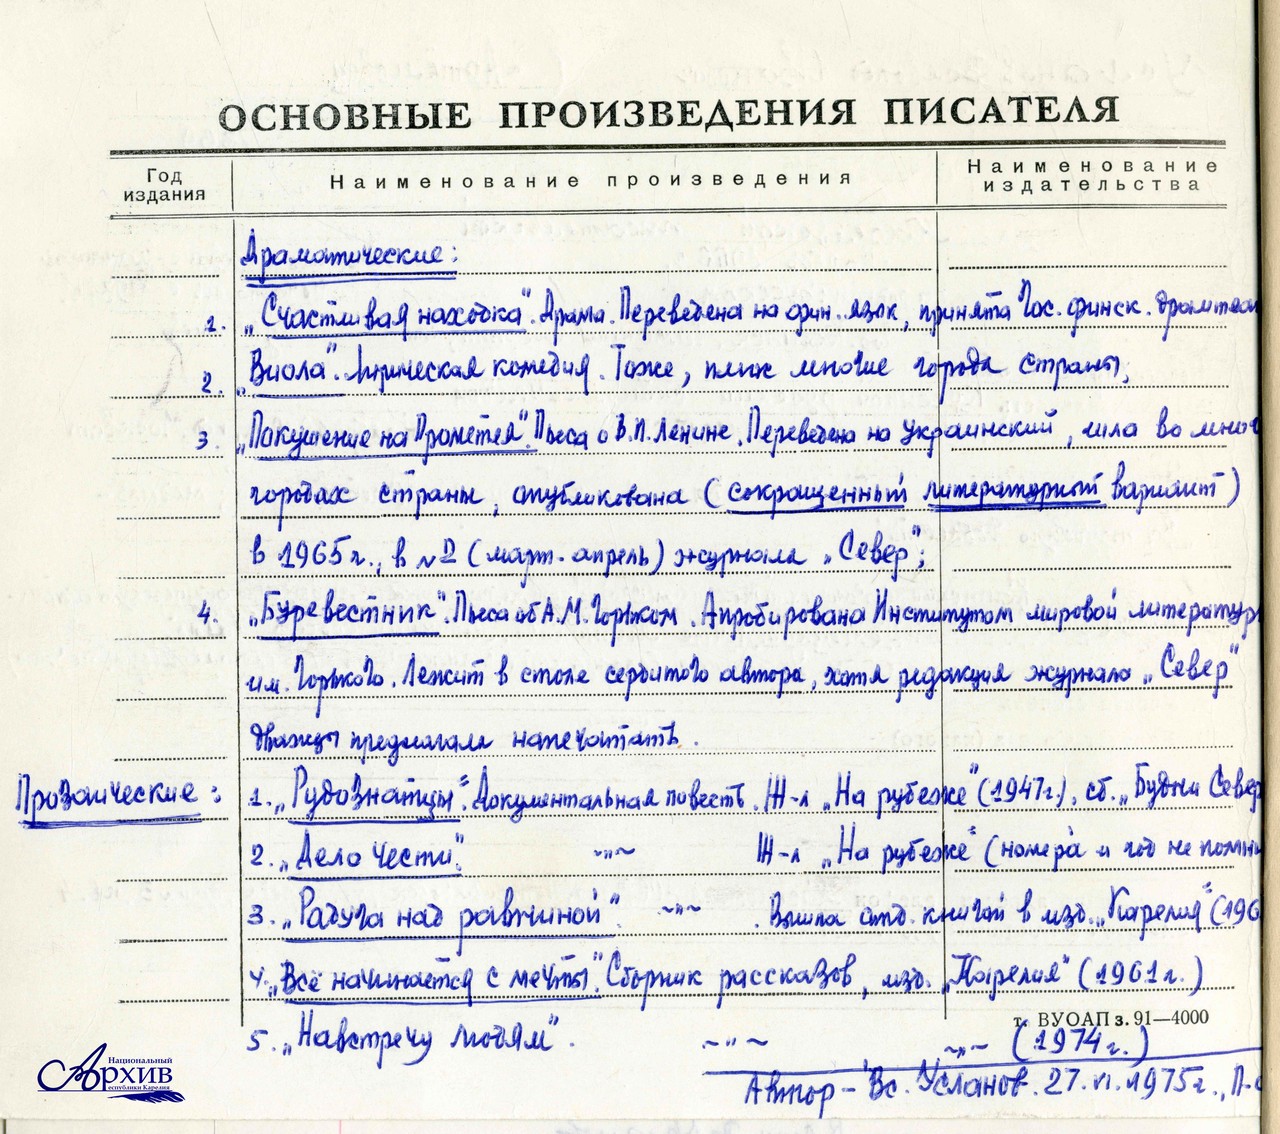 ОСНОВНЫЕ ПРОИЗВЕДЕНИЯ ПИСАТЕЛЯ
Год издания
Наименование произведения
Наименование издательства
Драматические:
1. „Счастливая находка". Драма. Переведена на фин. язык, принята Гос. финск. драмтеат
2. „Виола". Лирическая комедия. Тоже, плюс многие города страны;
3. „Покушение на Прометея". Пьеса о В.И. Ленине. Переведена на украинский, шла во мног
городах страны, опубликована (сокращенный литературный вариант)
в 1965 г., в (март-апрель) журнала „Север";
4. „Буревестник". Пьеса об А.М. Горьком. Апробирована Институтом мировой литератур
им. Горького. Лежит в столе сердитого автора, хотя редакция журнала „Север"
дважды предлагала напечатать.
Прозаические:
1. „Рудознатцы". Документальная повесть. Ж-л „На рубеже" (1947 г.), сб. „Будни Север
2. „Дело чести". —"— Ж-л „На рубеже" (номера и год не помн
3. „Радуга над равниной". —"— . Вышла отд. книгой в изд. „Карелия" (196
4. „Всё начинается с мечты". Сборник рассказов, изд. „Карелия" (1961 г.)
т. ВУОАП з. 91—4000
5. „Навстречу людям". —"— —"— (1974 г.)
Автор - Вс. Усланов. 27.VI.1975 г., П-
Национальный
Архив
республики Карелия